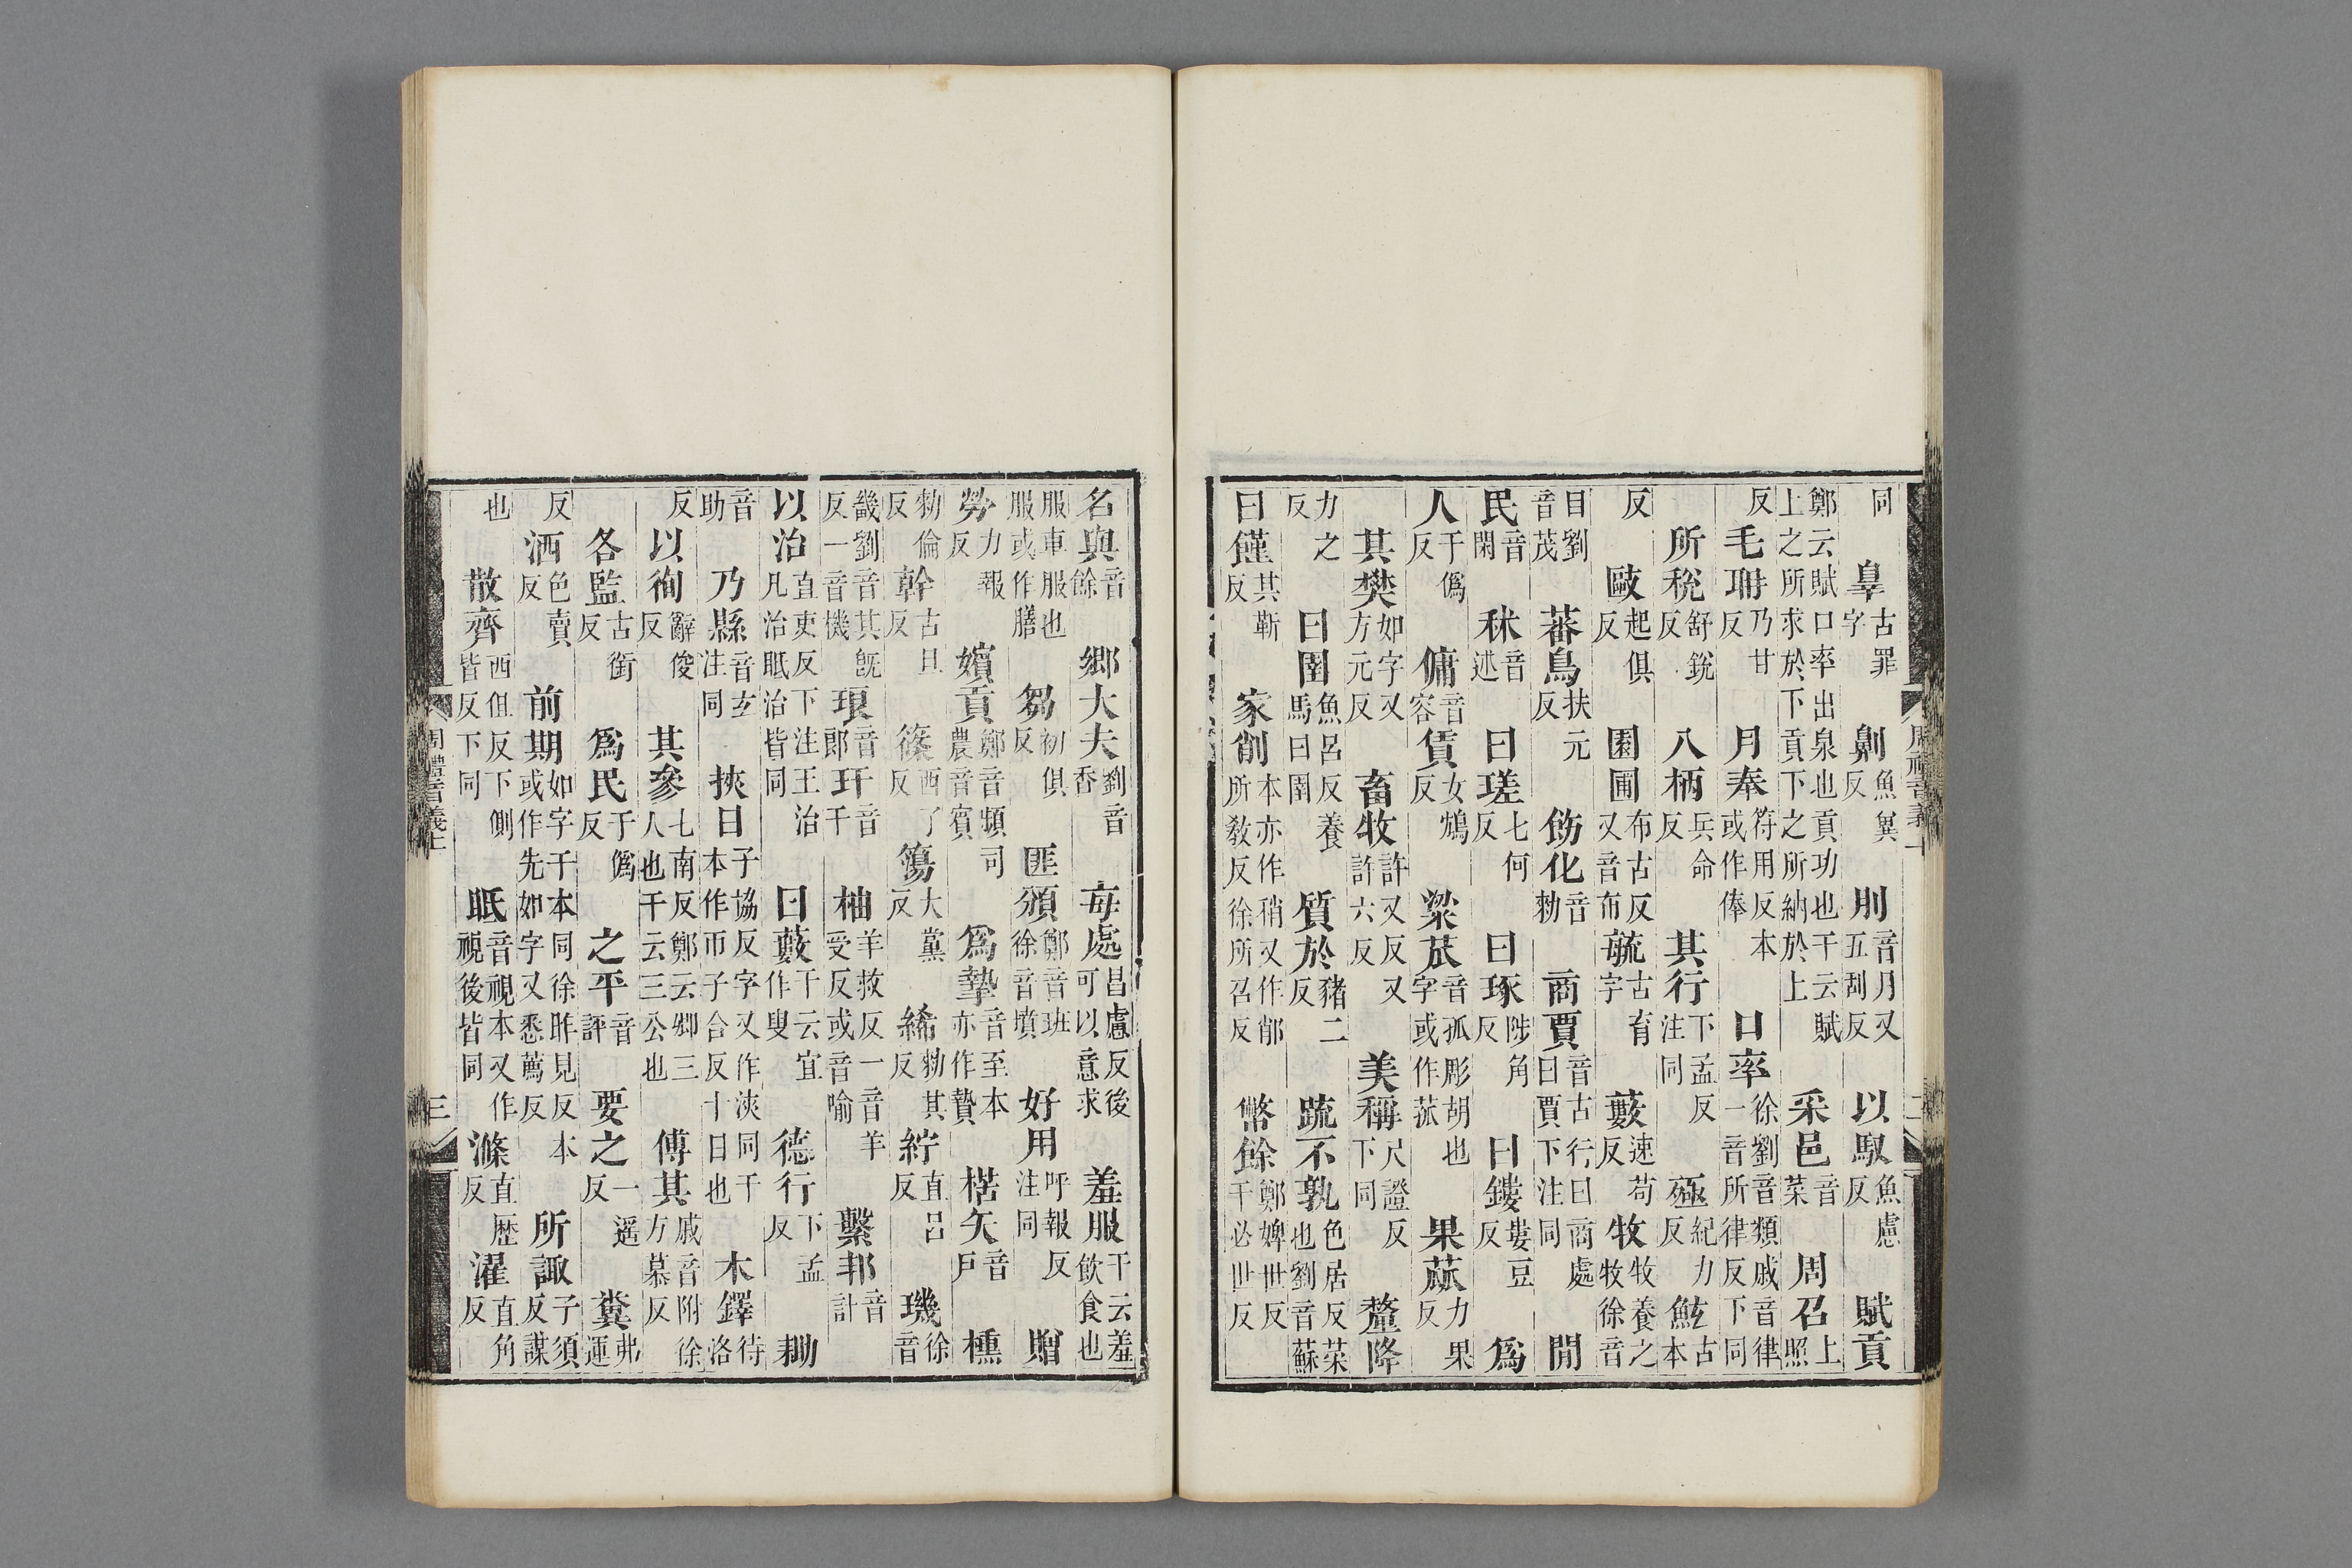 同辠古罪字劓魚兾反刖音月又五刮反以馭魚慮反賦貢
鄭云賦口率出泉也貢功也干云賦上之所求於下貢下之所納於上采邑音菜周召上照
反毛聃乃甘反月奉符用反本或作俸口率徐劉音類戚音律一音所律反下同
所稅舒銳反八柄兵命反其行下孟反注同殛紀力反鮌古本
反敺起俱反園圃布古反又音布毓古育字藪速苟反牧牧養之牧徐音
目劉音茂蕃鳥扶元反飭化音勑商賈音古行曰商處曰賈下注同閒
民音閑秫音述曰瑳七何反曰琢陟角反曰鏤婁豆反爲
人于僞反傭音容賃女鴆反粱苽音孤彫胡也字或作菰果蓏力果反
其樊如字又方元反畜牧許又反又許六反美稱尺證反下同釐降
力之反曰圉魚呂反養馬曰圉質於豬二反疏不孰色居反菜也劉音蘇
曰饉其靳反家削本亦作稍又作郙所敎反徐所召反幣餘鄭婢世反干必世反
名與音餘鄉大夫劉音香每處昌慮反後可以意求羞服干云羞飲食也
服車服也服或作膳芻初俱反匪頒鄭音班徐音墳好用呼報反注同贈
勞力報反嬪貢鄭音頻司農音賓爲摯音至本亦作贄楛矢音戶櫄
勑倫反幹古旦反篠西了反簜大黨反絺勑其反紵直呂反璣徐音
畿劉音其旣反一音機琅音郎玕音干柚羊救反一音羊受反或音喻繫邦音計
以治直吏反下注王治凡治眡治皆同曰藪干云宜作叟德行下孟反耡
音助乃縣音玄注同挾日子協反字又作浹同干本作帀子合反十日也木鐸待洛
反以徇辭俊反其參七南反鄭云卿三人也干云三公也傅其戚音附徐方慕反
各監古銜反爲民于僞反之平音評要之一遥反糞弗運
反洒色賣反前期如字干本同徐昨見反本或作先如字又悉薦反所諏子須反謀
也散齊西但反下側皆反下同眡音視本又作視後皆同滌直歷反濯直角反
周禮音義上 三